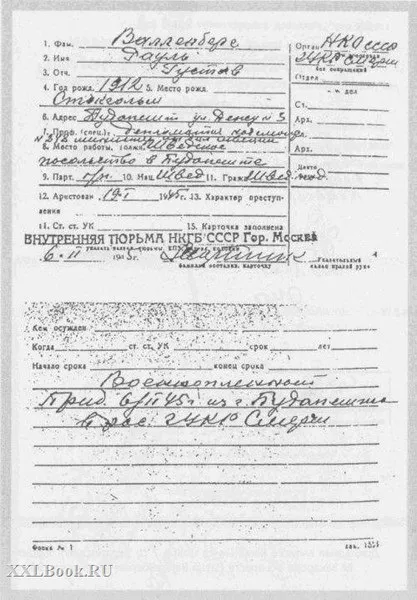 1. Фам. Валленберг
2. Имя Рауль
3. Отч. Густав
Орган НКО СССР
ГУКР Смерш
без сокращений
Отдел
4. Год рожд. 1912 5. Место рожд.
Стокгольм
Ст.
6. Адрес Будапешт ул
Арх.
7. Проф. (спец.)
8. Место работы, должн. Шведское
посольство в Будапеште
Арх.
9. Парт. б/п 10. Нац. Швед 11. Гражд. Швед.
12. Арестован 19-I 1945 г. 13. Характер преступ-
ления
14. Ст. ст. УК 15. Карточка заполнена
ВНУТРЕННЯЯ ТЮРЬМА НКГБ СССР Гор. Москва
6. II 1945 г.
фамилия составит. карточку
Указательный
палец правой руки
Кем осужден
Когда ст. ст. УК срок лет
Начало срока конец срока
Военнопленный
Приб. 6/II 45 г из г. Будапешта
в рас. ГУКР Смерш
Форма № 1
зак.
XXLBook.RU